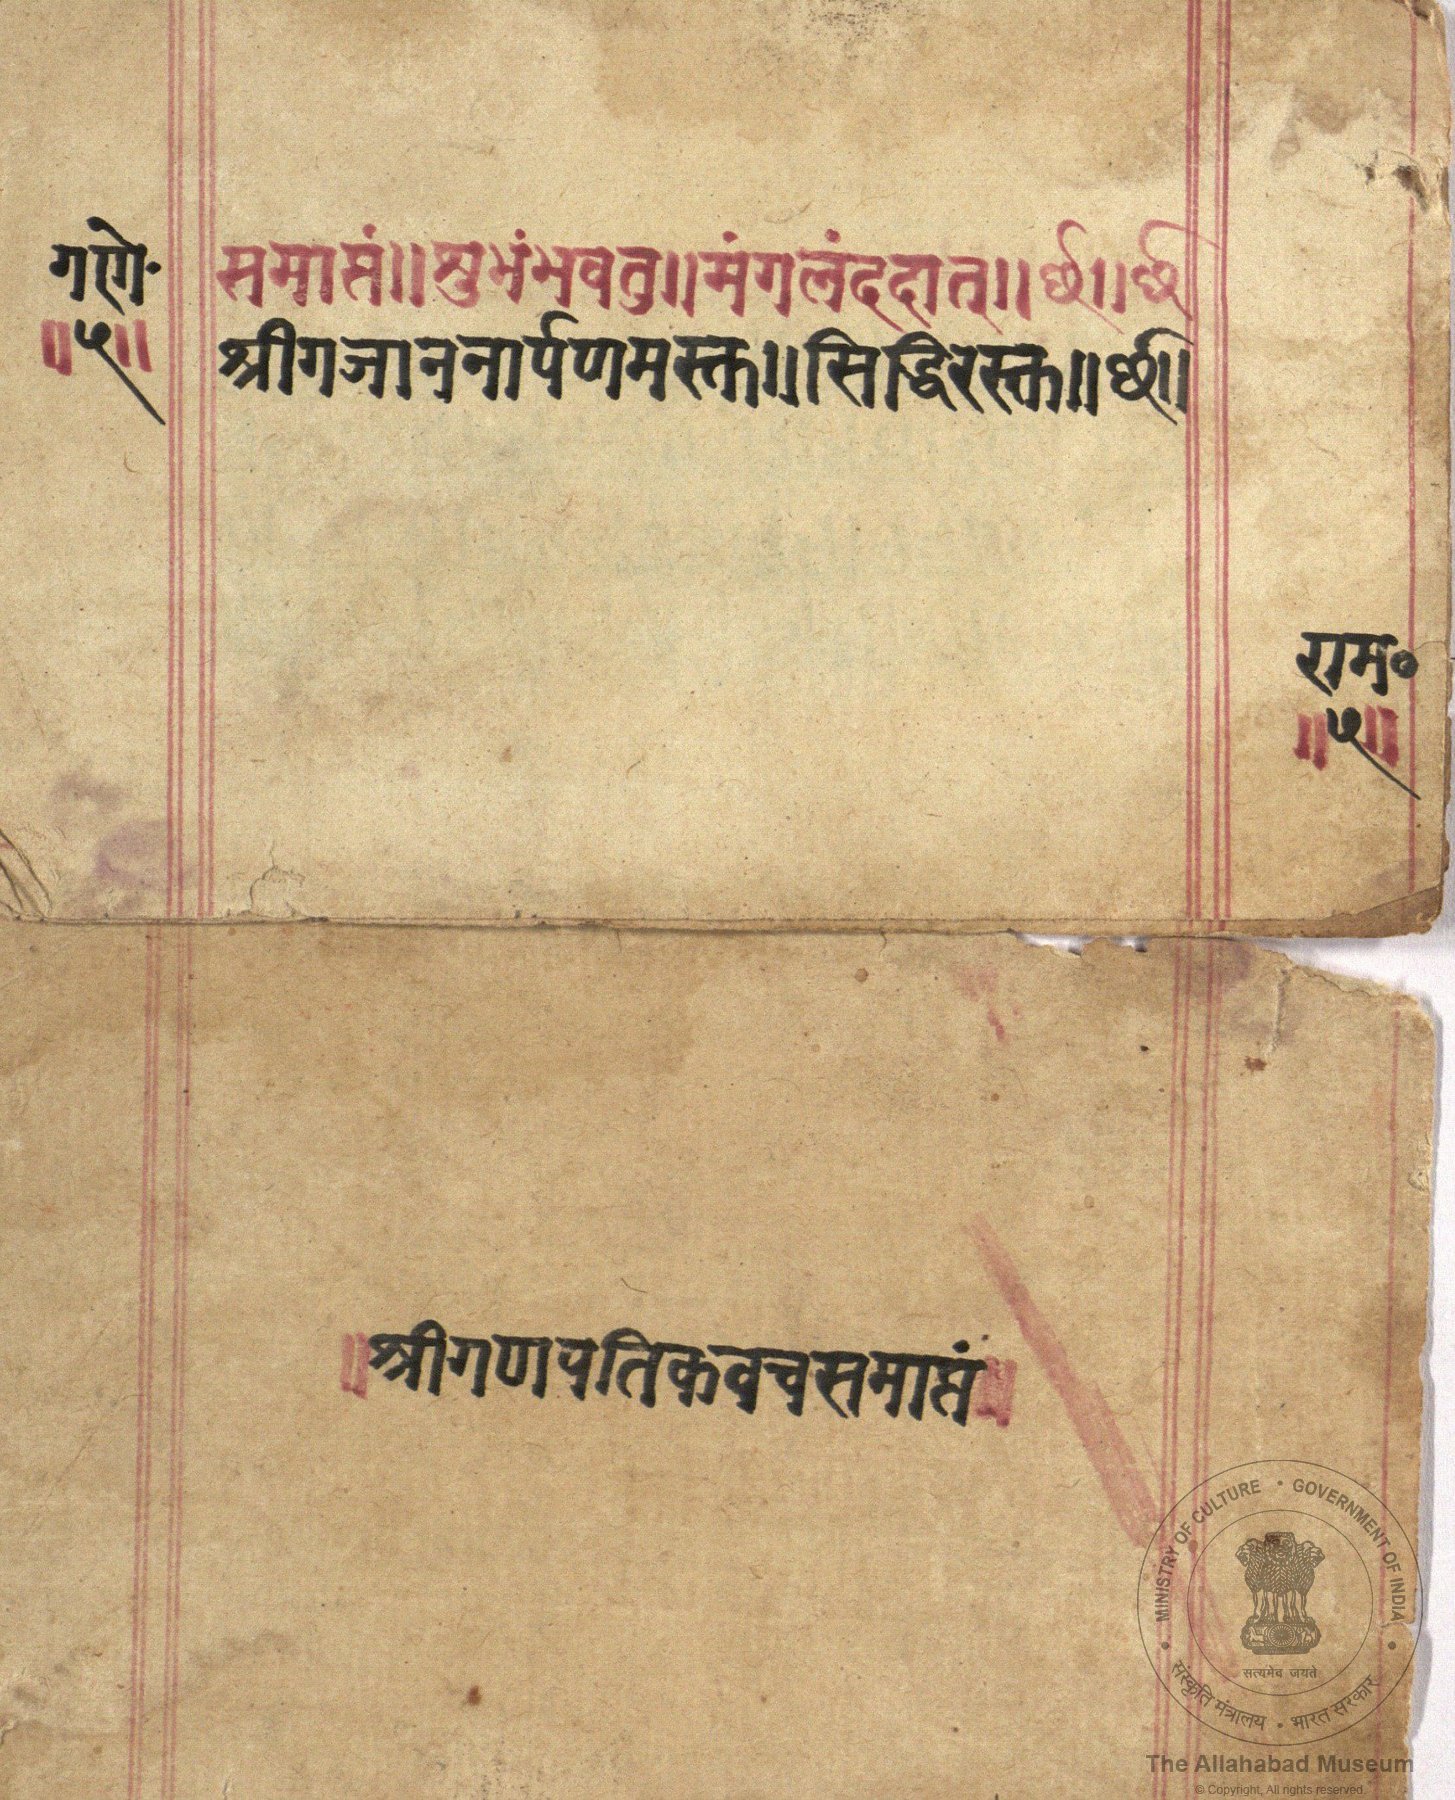 गणे॰
॥५॥
समाप्तं॥शुभंभवतु॥मंगलंददात्॥छ॥छ
श्रीगजाननार्पणमस्तु॥सिद्धिरस्तु॥छ॥
राम॰
॥५॥
॥श्रीगणपतिकवचसमाप्तं॥
MINISTRY OF CULTURE • GOVERNMENT OF INDIA
सत्यमेव जयते
संस्कृति मंत्रालय • भारत सरकार
The Allahabad Museum
© Copyright, All rights reserved.